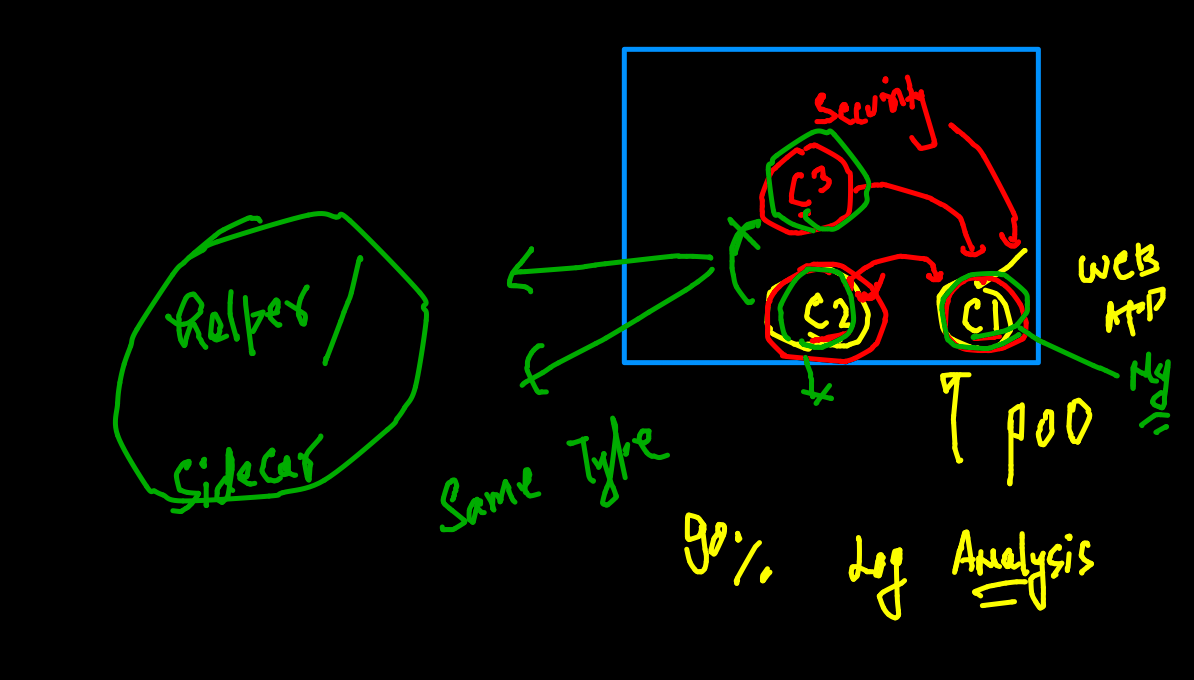 Security
C3
C2
C1
WEB
APP
Ng
helper
Sidecar
Same Type
POD
90%
Log Analysis